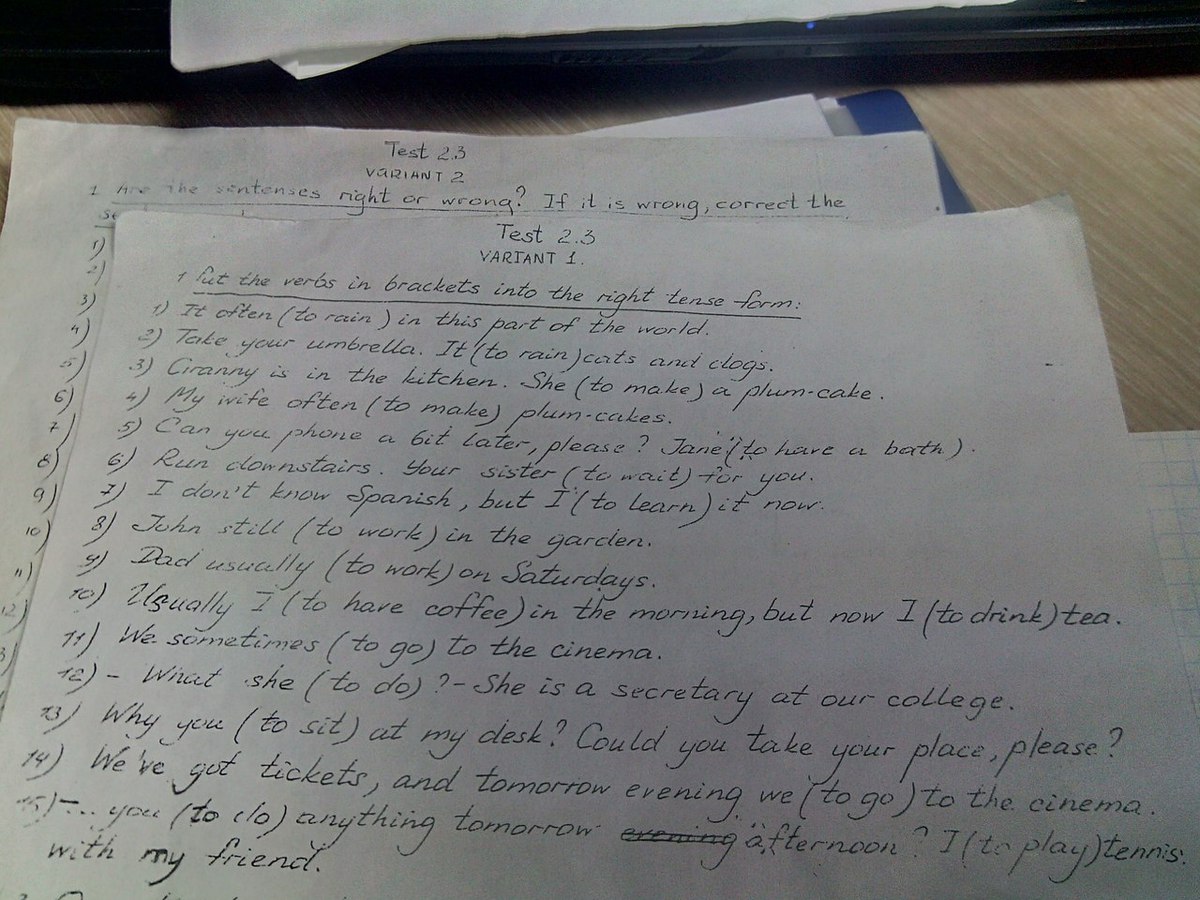 Test 2.3
VARIANT 2
1 Are the sentenses right or wrong? If it is wrong, correct the
1)
2)
3)
4)
5)
6)
7)
8)
9)
10)
11)
12)
Test 2.3
VARIANT 1.
1 Put the verbs in brackets into the right tense form:
1) It often (to rain) in this part of the world.
2) Take your umbrella. It (to rain) cats and dogs.
3) Granny is in the kitchen. She (to make) a plum-cake.
4) My wife often (to make) plum-cakes.
5) Can you phone a bit later, please? Jane (to have a bath).
6) Run downstairs. Your sister (to wait) for you.
7) I don't know Spanish, but I (to learn) it now.
8) John still (to work) in the garden.
9) Dad usually (to work) on Saturdays.
10) Usually I (to have coffee) in the morning, but now I (to drink) tea.
11) We sometimes (to go) to the cinema.
12) - What she (to do)? - She is a secretary at our college.
13) Why you (to sit) at my desk? Could you take your place, please?
14) We've got tickets, and tomorrow evening we (to go) to the cinema.
15) - ... you (to do) anything tomorrow evening afternoon? I (to play) tennis
with my friend.